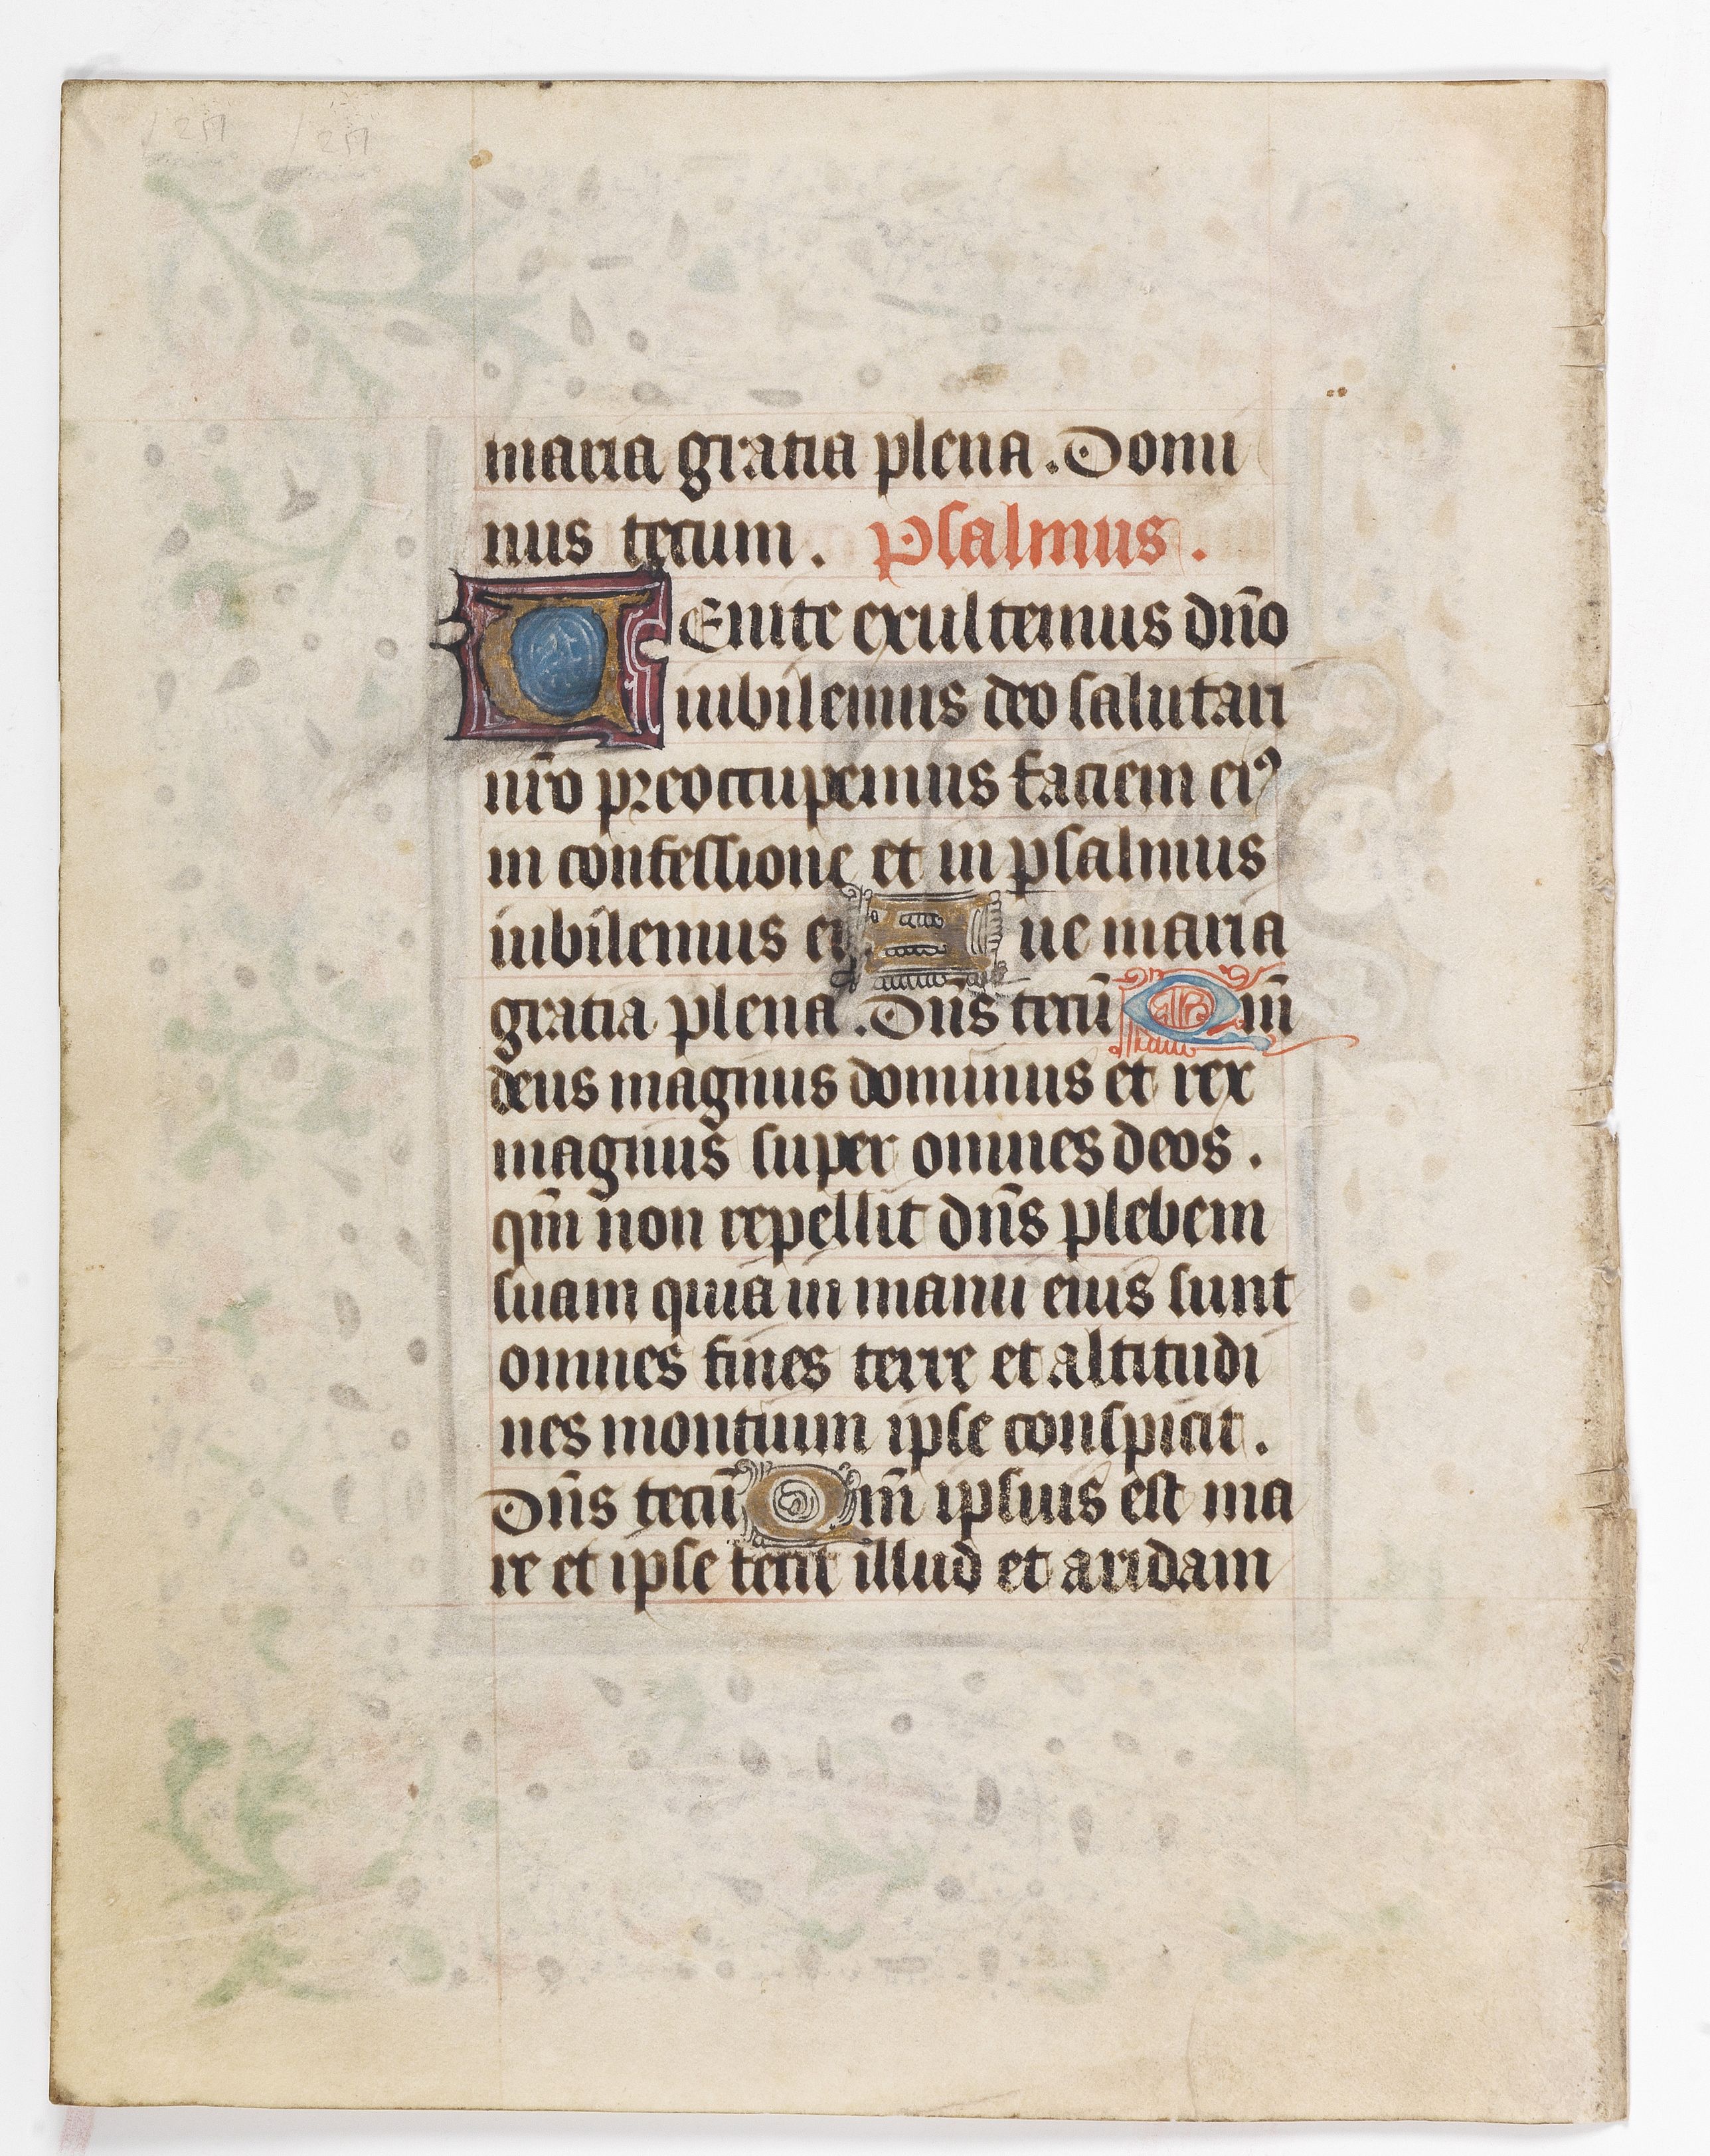 maria gratia plena. Domi
nus tecum. Psalmus.
VEnite exultemus dn̄o
iubilemus deo salutari
nr̄o preoccupemus faciem eiꝰ
in confessione et in psalmis
iubilemus ei. Aue maria
gratia plena. Dn̄s tecū Qm̄
deus magnus dominus et rex
magnus super omnes deos.
qm̄ non repellit dn̄s plebem
suam quia in manu eius sunt
omnes fines terre et altitudi
nes montium ipse conspicit.
Dn̄s tecū Qm̄ ipsius est ma
re et ipse fecit illud et aridam